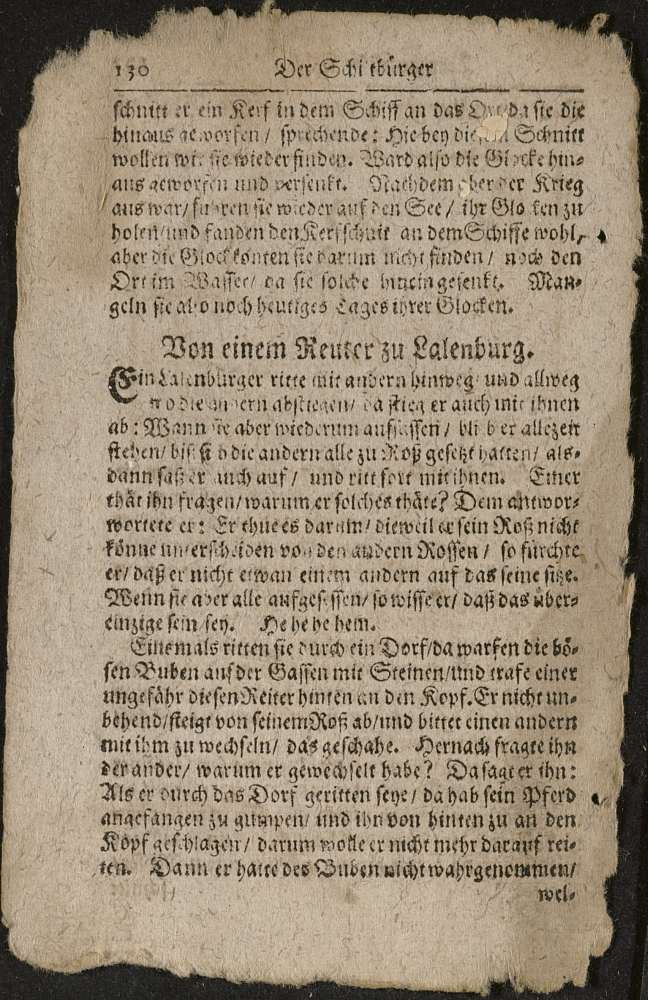 130 Der Schiltbürger
schnitt er ein Kerf in dem Schiff an das Ort/da sie die
hinaus geworfen / sprechende: Hie bey diesem Schnitt
wollen wir sie wieder finden. Ward also die Glocke hin-
aus geworfen und versenkt. Nachdem aber der Krieg
aus war/ fuhren sie wieder auf den See / ihr Glocken zu
holen/ und fanden den Kerfschnit an dem Schiffe wohl,
aber die Glock konten sie darum nicht finden / noch den
Ort im Wasser/ da sie solche hinein gesenkt. Man-
geln sie also noch heutiges Tages ihrer Glocken.
Von einem Reuter zu Lalenburg.
Ein Lalenbürger ritte mit andern hinweg/ und allweg
wo die andern abstiegen/ da stieg er auch mit ihnen
ab: Wann sie aber wiederum aufsassen / blieb er allezeit
stehen/ biß sich die andern alle zu Roß gesetzt hatten/ als-
dann saß er auch auf / und ritt fort mit ihnen. Einer
thät ihn fragen/ warum er solches thäte? Dem antwor-
wortete er: Er thue es darum/ dieweil er sein Roß nicht
könne unterscheiden von den andern Rossen / so fürchte
er/ daß er nicht etwan einem andern auf das seine sitze.
Wenn sie aber alle aufgesessen/ so wisse er/ daß das über-
einzige sein sey. He he he hem.
Einsmals ritten sie durch ein Dorf/da warfen die bö-
sen Buben auf der Gassen mit Steinen/und trafe einer
ungefähr diesen Reiter hinten an den Kopf. Er nicht un-
behend/steigt von seinem Roß ab/und bittet einen andern
mit ihm zu wechseln/ das geschahe. Hernach fragte ihn
der ander/ warum er gewechselt habe? Da sagt er ihn:
Als er durch das Dorf geritten seye / da hab sein Pferd
angefangen zu gumpen/ und ihn von hinten zu an den
Kopf geschlagen / darum wolle er nicht mehr darauf rei-
ten. Dann er hatte des Buben nicht wahrgenommen/
wel-